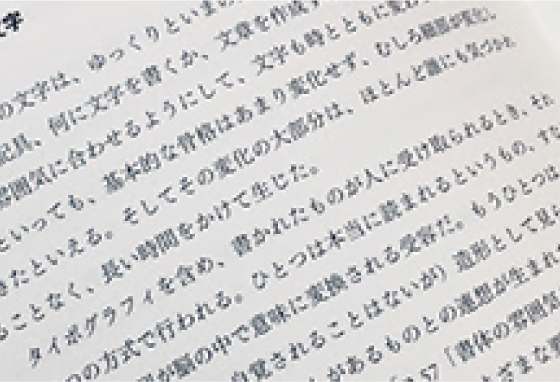 文字
の文字は、ゆっくりといまの
記具、何に文字を書くか、文章を作成す
雰囲気に合わせるようにして、文字も時とともに変わ
といっても、基本的な骨格はあまり変化せず、むしろ細部が変化し
きたといえる。そしてその変化の大部分は、ほとんど誰にも気づかれ
ることなく、長い時間をかけて生じた。
タイポグラフィを含め、書かれたものが人に受け取られるとき、それ
つの方式で行われる。ひとつは本当に読まれるというもの、すな
が脳の中で意味に変換される受容だ。もうひとつは
自覚されることはないが）造形として見
があるものとの連想が生まれ
57「書体の雰囲気
ざまな要